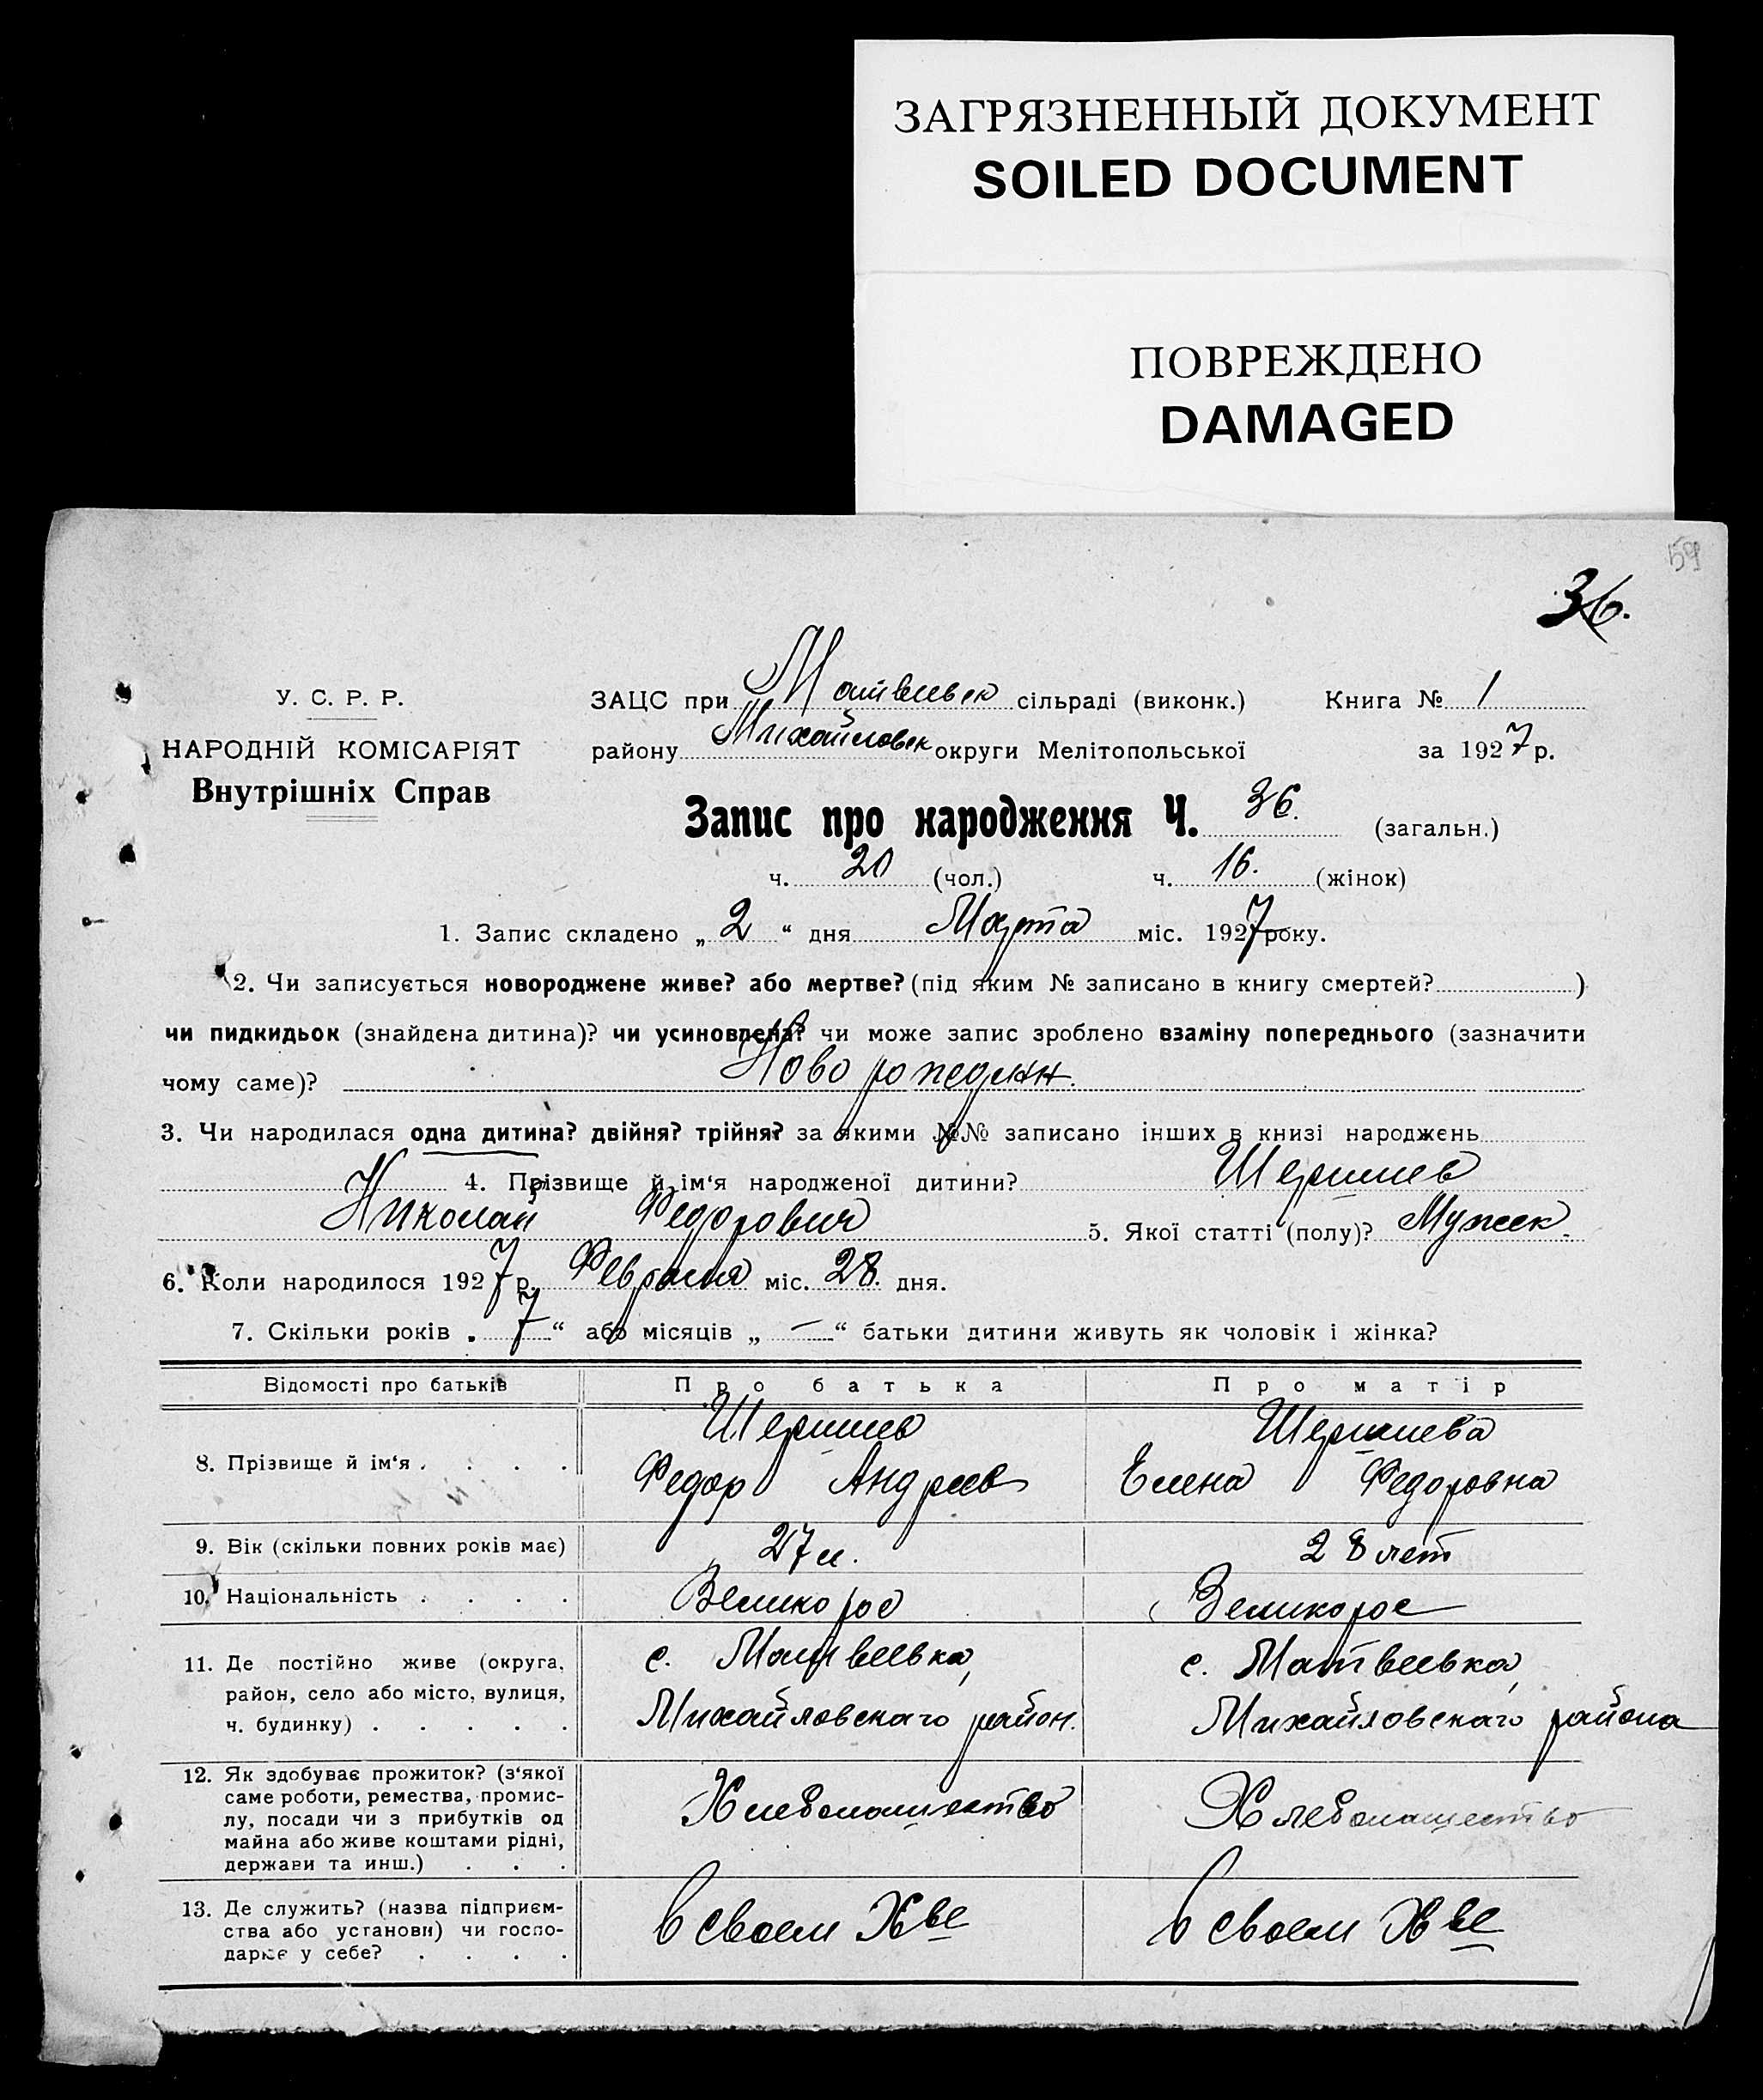 ЗАГРЯЗНЕННЫЙ ДОКУМЕНТ
SOILED DOCUMENT
ПОВРЕЖДЕНО
DAMAGED
59
36.
У. С. Р. Р.
НАРОДНІЙ КОМІСАРІЯТ
Внутрішніх Справ
ЗАЦС при Матвеевск сільраді (виконк.) Книга № 1
району Михайловск округи Мелітопольської за 1927 р.
Запис про народження Ч. 36. (загальн.)
ч. 20 (чол.) ч. 16. (жінок)
1. Запис складено „ 2 “ дня Марта міс. 1927 року.
2. Чи записується новороджене живе? або мертве? (під яким № записано в книгу смертей? )
чи пидкидьок (знайдена дитина)? чи усиновлена? чи може запис зроблено взаміну попереднього (зазначити
чому саме)? Новорожденн.
3. Чи народилася одна дитина? двійня? трійня? за якими №№ записано інших в книзі народжень
4. Прізвище й ім‘я народженої дитини? Шершнев
Николай Федорович 5. Якої статті (полу)? Мужск.
6. Коли народилося 1927 р. Февраля міс. 28. дня.
7. Скільки років „ 7 “ або місяців „ — “ батьки дитини живуть як чоловік і жінка?
Відомості про батьків Про батька Про матір
8. Прізвище й ім‘я . . . .
Шершнев
Федор Андреев
Шершнева
Елена Федоровна
9. Вік (скільки повних років має) 27 л. 28 лет
10. Національність . . . . Великорос Великорос
11. Де постійно живе (округа,
район, село або місто, вулиця,
ч. будинку) . . . . .
с. Матвеевка,
Михайловскаго район.
с. Матвеевка,
Михайловскаго района
12. Як здобуває прожиток? (з‘якої
саме роботи, ремества, промис-
лу, посади чи з прибутків од
майна або живе коштами рідні,
держави та инш.) . . .
Хлебопашество
Хлебопашество
13. Де служить? (назва підприєм-
ства або установи) чи госпо-
дарює у себе? . . . .
в своем Хве
в своем Хве